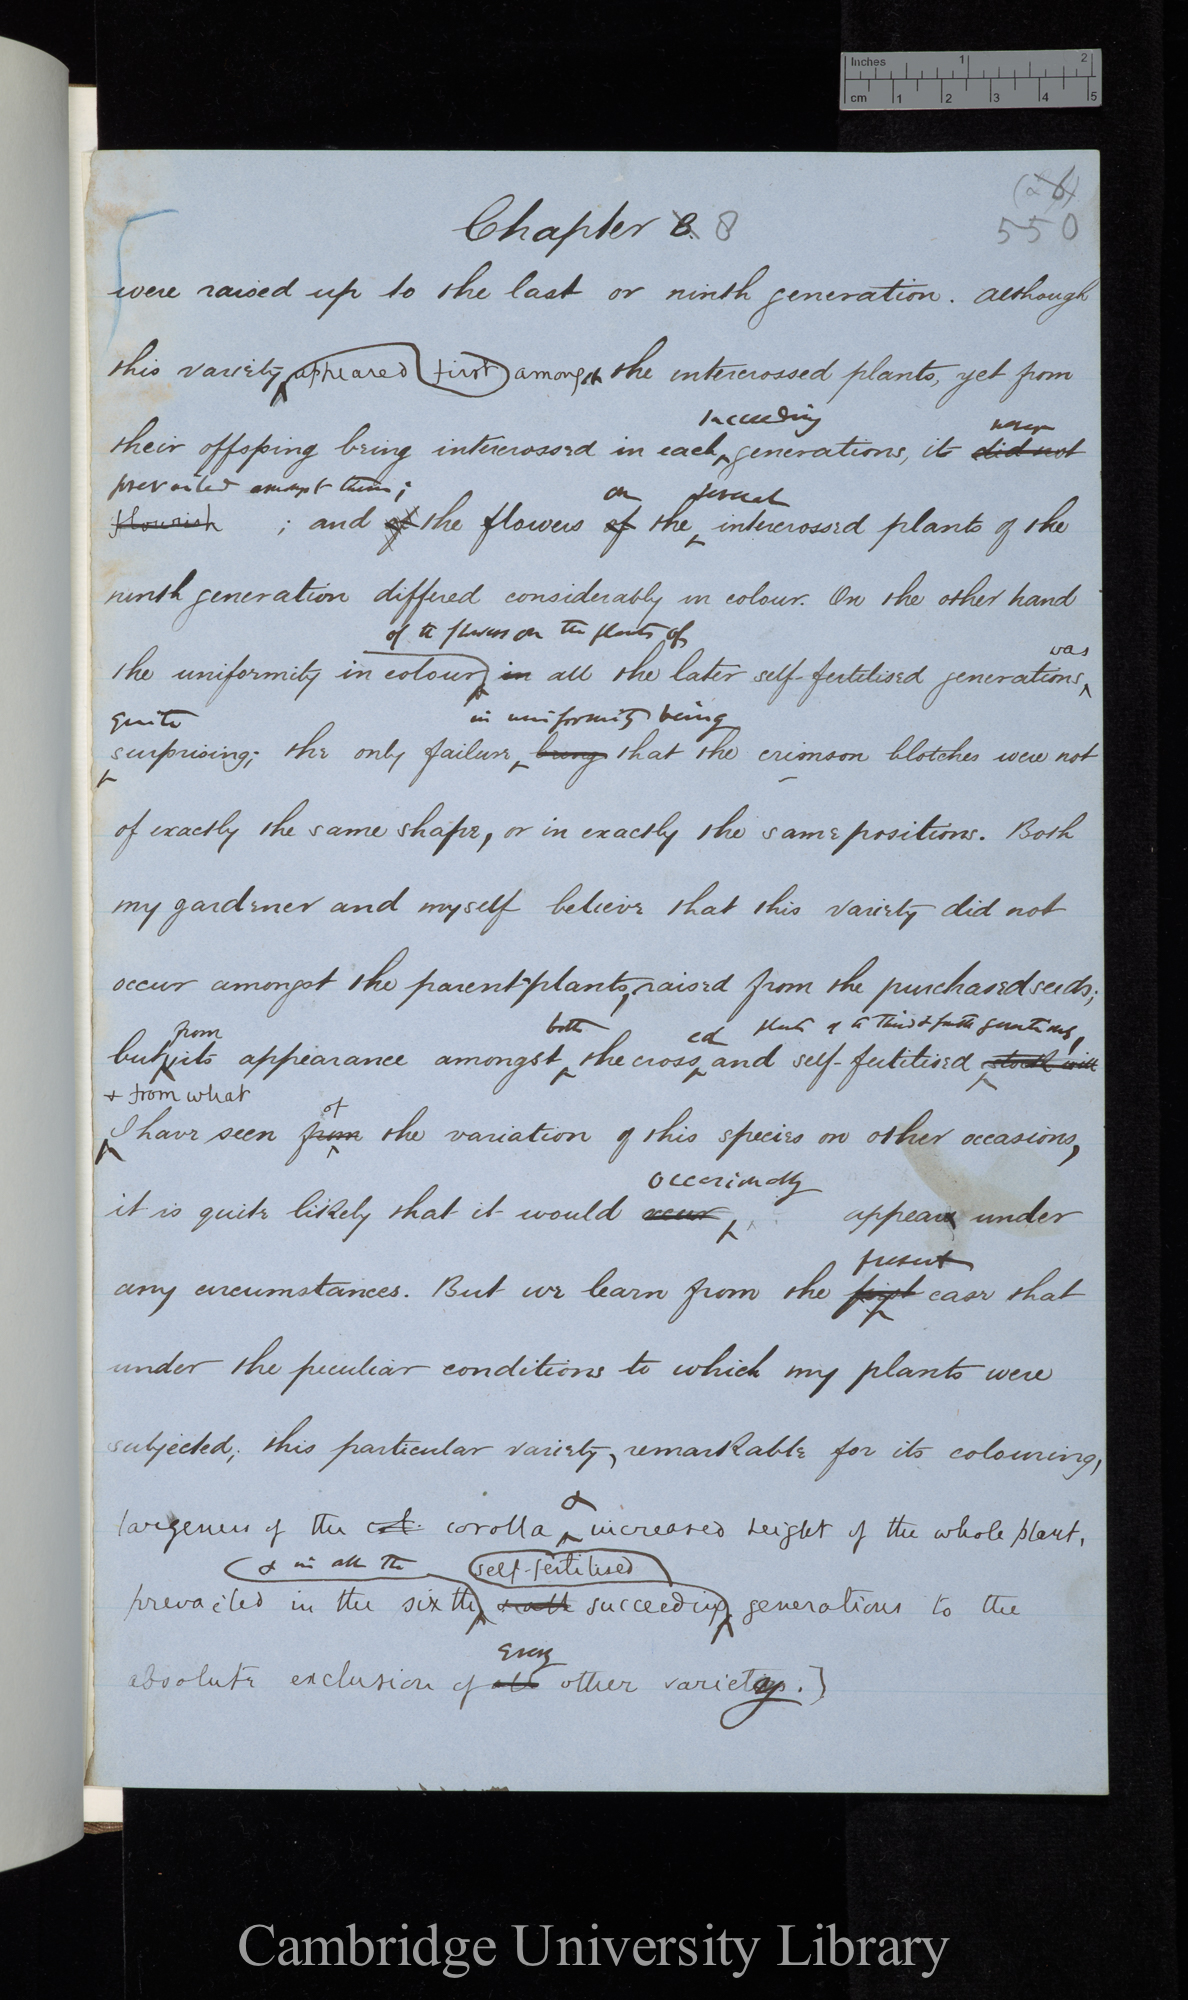 Inches 1 2
cm 1 2 3 4 5
(a 6)
550
Chapter 8. 8
were raised up to the last or ninth generation. Although
this variety appeared first amongst the intercrossed plants, yet from
succeeding never
their offspring being intercrossed in each generations, it did not
prevailed amongst them;
on several
flourish ; and of the flowers of the intercrossed plants of the
ninth generation differed considerably in colour. On the other hand
of the flowers on the plants of
was
the uniformity in colour, in all the later self-fertilised generations
quite in uniformity being
surprising; the only failure being that the crimson blotches were not
of exactly the same shape, or in exactly the same positions. Both
my gardener and myself believe that this variety did not
occur amongst the parent-plants, raised from the purchased seeds;
from both ed plants of the third & fourth generations,
but its appearance amongst the cross and self-fertilised stock will
& from what
of
I have seen from the variation of this species on other occasions,
occasionally
it is quite likely that it would occur appear under
present
any circumstances. But we learn from the first case that
under the peculiar conditions to which my plants were
subjected, this particular variety, remarkable for its colouring,
&
largeness of the col. corolla increased height of the whole plant,
& in all the self-fertilised
prevailed in the sixth succeeding generations to the
every
absolute exclusion of all other variety.]
Cambridge University Library